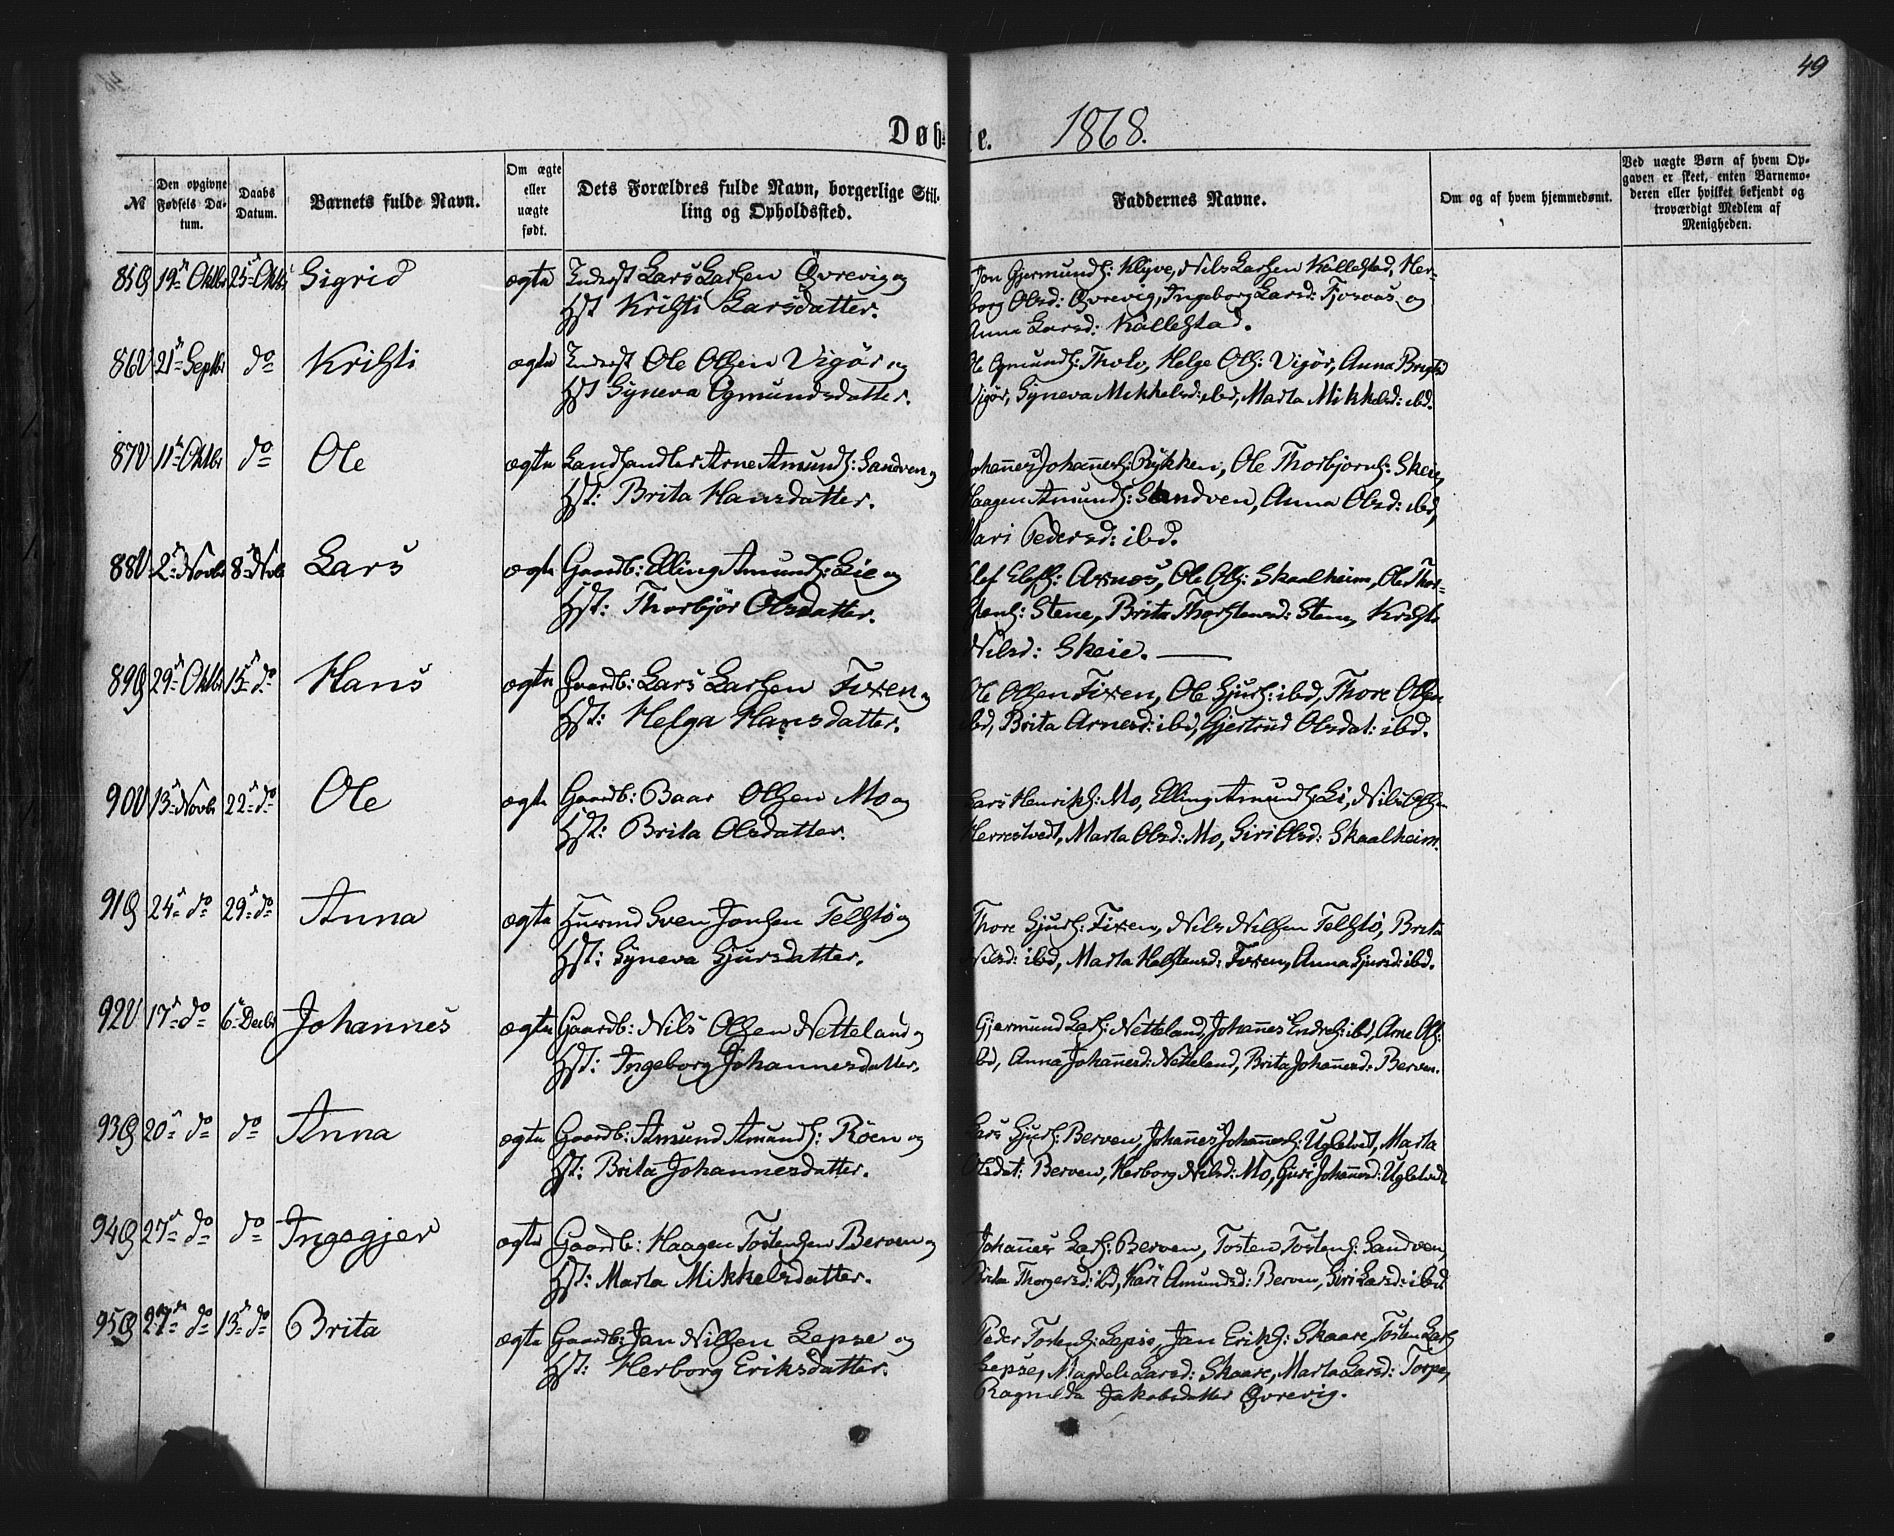 49
Døbte. 1868.
№
Den opgivne Fødsels Datum.
Daabs Datum.
Barnets fulde Navn.
Om ægte eller uægte født.
Dets Forældres fulde Navn, borgerlige Stilling og Opholdssted.
Faddernes Navne.
Om og af hvem hjemmedøbt.
Ved uægte Børn af hvem Opgaven er skeet, enten Barnemoderen eller hvilket bekjendt og troværdigt Medlem af Menigheden.
85 19 Oktbr 25 Oktbr Sigrid ægte Inderst Lars Larsen Øvrevig og
Hst Kristi Larsdatter.
Jon Gjermunds: Klyve, Nils Larsen Kallestad, Her-
borg Olsd: Øvrevig, Ingeborg Larsd: Fosvas og
Anna Larsd: Kallestad.
86 21 Septbr do Kristi ægte Inderst Ole Olsen Vigør og
Hst Syneva Ogmundsdatter.
Ogmunds: Tholo, Helge Ols: Vigør, Anna
Vigør, Syneva Mikkelsd: ibd, Marta Mikkelsd: ibd.
87 11 Oktbr do Ole ægte Landhandler Arne Amunds: Sandven og
Hst: Brita Hansdatter.
Johannes Johannes: Rykken, Ole Thorbjorns: Skeie,
Haagen Amunds: Sandven, Anna Olsd: ibd,
Mari Pedersd: ibd.
88 2 Novbr 8 Nvb Lars ægte Gaardb: Elling Amunds: Lie og
Hst: Thorbjør Olsdatter.
Elef Elefs: Axnes, Ole Ols: Skaalheim, Ole Thor-
stens: Stene, Brita Thorstensd: Stene, Kristi
Nilsd: Skeie.
89 29 Oktbr 15 do Hans ægte Gaardb: Lars Larsen Fixen og
Hst: Helga Hansdatter.
Ole Olsen Fixen, Ole Sjurs: ibd, Thore Olsen
ibd, Brita Arnesd: ibd, Gjertrud Olsdat: ibd.
90 13 Novbr 22 do Ole ægte Gaardb: Baar Olsen Mo og
Hst: Brita Olsdatter.
Lars Henriks: Mo, Elling Amunds: Li, Nils Olsen
Herrestvedt, Marta Olsd: Mo, Siri Olsd: Skaalheim.
91 24 do 29 do Anna ægte Husmd Sven Jonsen Telstø og
Hst: Syneva Sjursdatter.
Thore Sjurs: Fixen, Nils Nilsen Telstø, Brita
Nilsd: ibd, Marta Helstensd: Fixen, Anna Sjursd: ibd.
92 17 do 6 Decbr Johannes ægte Gaardb: Nils Olsen Netteland og
Hst: Ingeborg Johannesdatter.
Gjermund Lars: Netteland, Johannes Endres: ibd, Arne Ols:
ibd, Anna Johannesd: Netteland, Brita Johannesd: Berven.
93 20 do do Anna ægte Gaardb: Amund Amunds: Røen og
Hst: Brita Johannesdatter.
Lars Sjurs: Berven, Johannes Johannes: Ugletvedt, Marta
Olsdat: Berven, Herborg Nilsd: Mo, Guri Johannesd: Ugletvedt
94 27 do do Ingegjer ægte Gaardb: Haagen Tostensen Berven og
Hst: Marta Mikkelsdatter.
Johannes Lars: Berven, Tosten Tostens: Sandven,
Brita Thorgersd: ibd, Kari Amundsd: Berven, Siri Larsd: ibd
95 27 do 13 do Brita ægte Gaardb: Jan Nilsen Lepse og
Hst: Herborg Eriksdatter.
Peder Tostens: Lepse, Jan Eriks: Skaare, Tosten Lars
Lepse, Magdela Larsd: Skaare, Marta Larsd: Torpe,
Ragnilda Jakobsdatter Øvrevig.